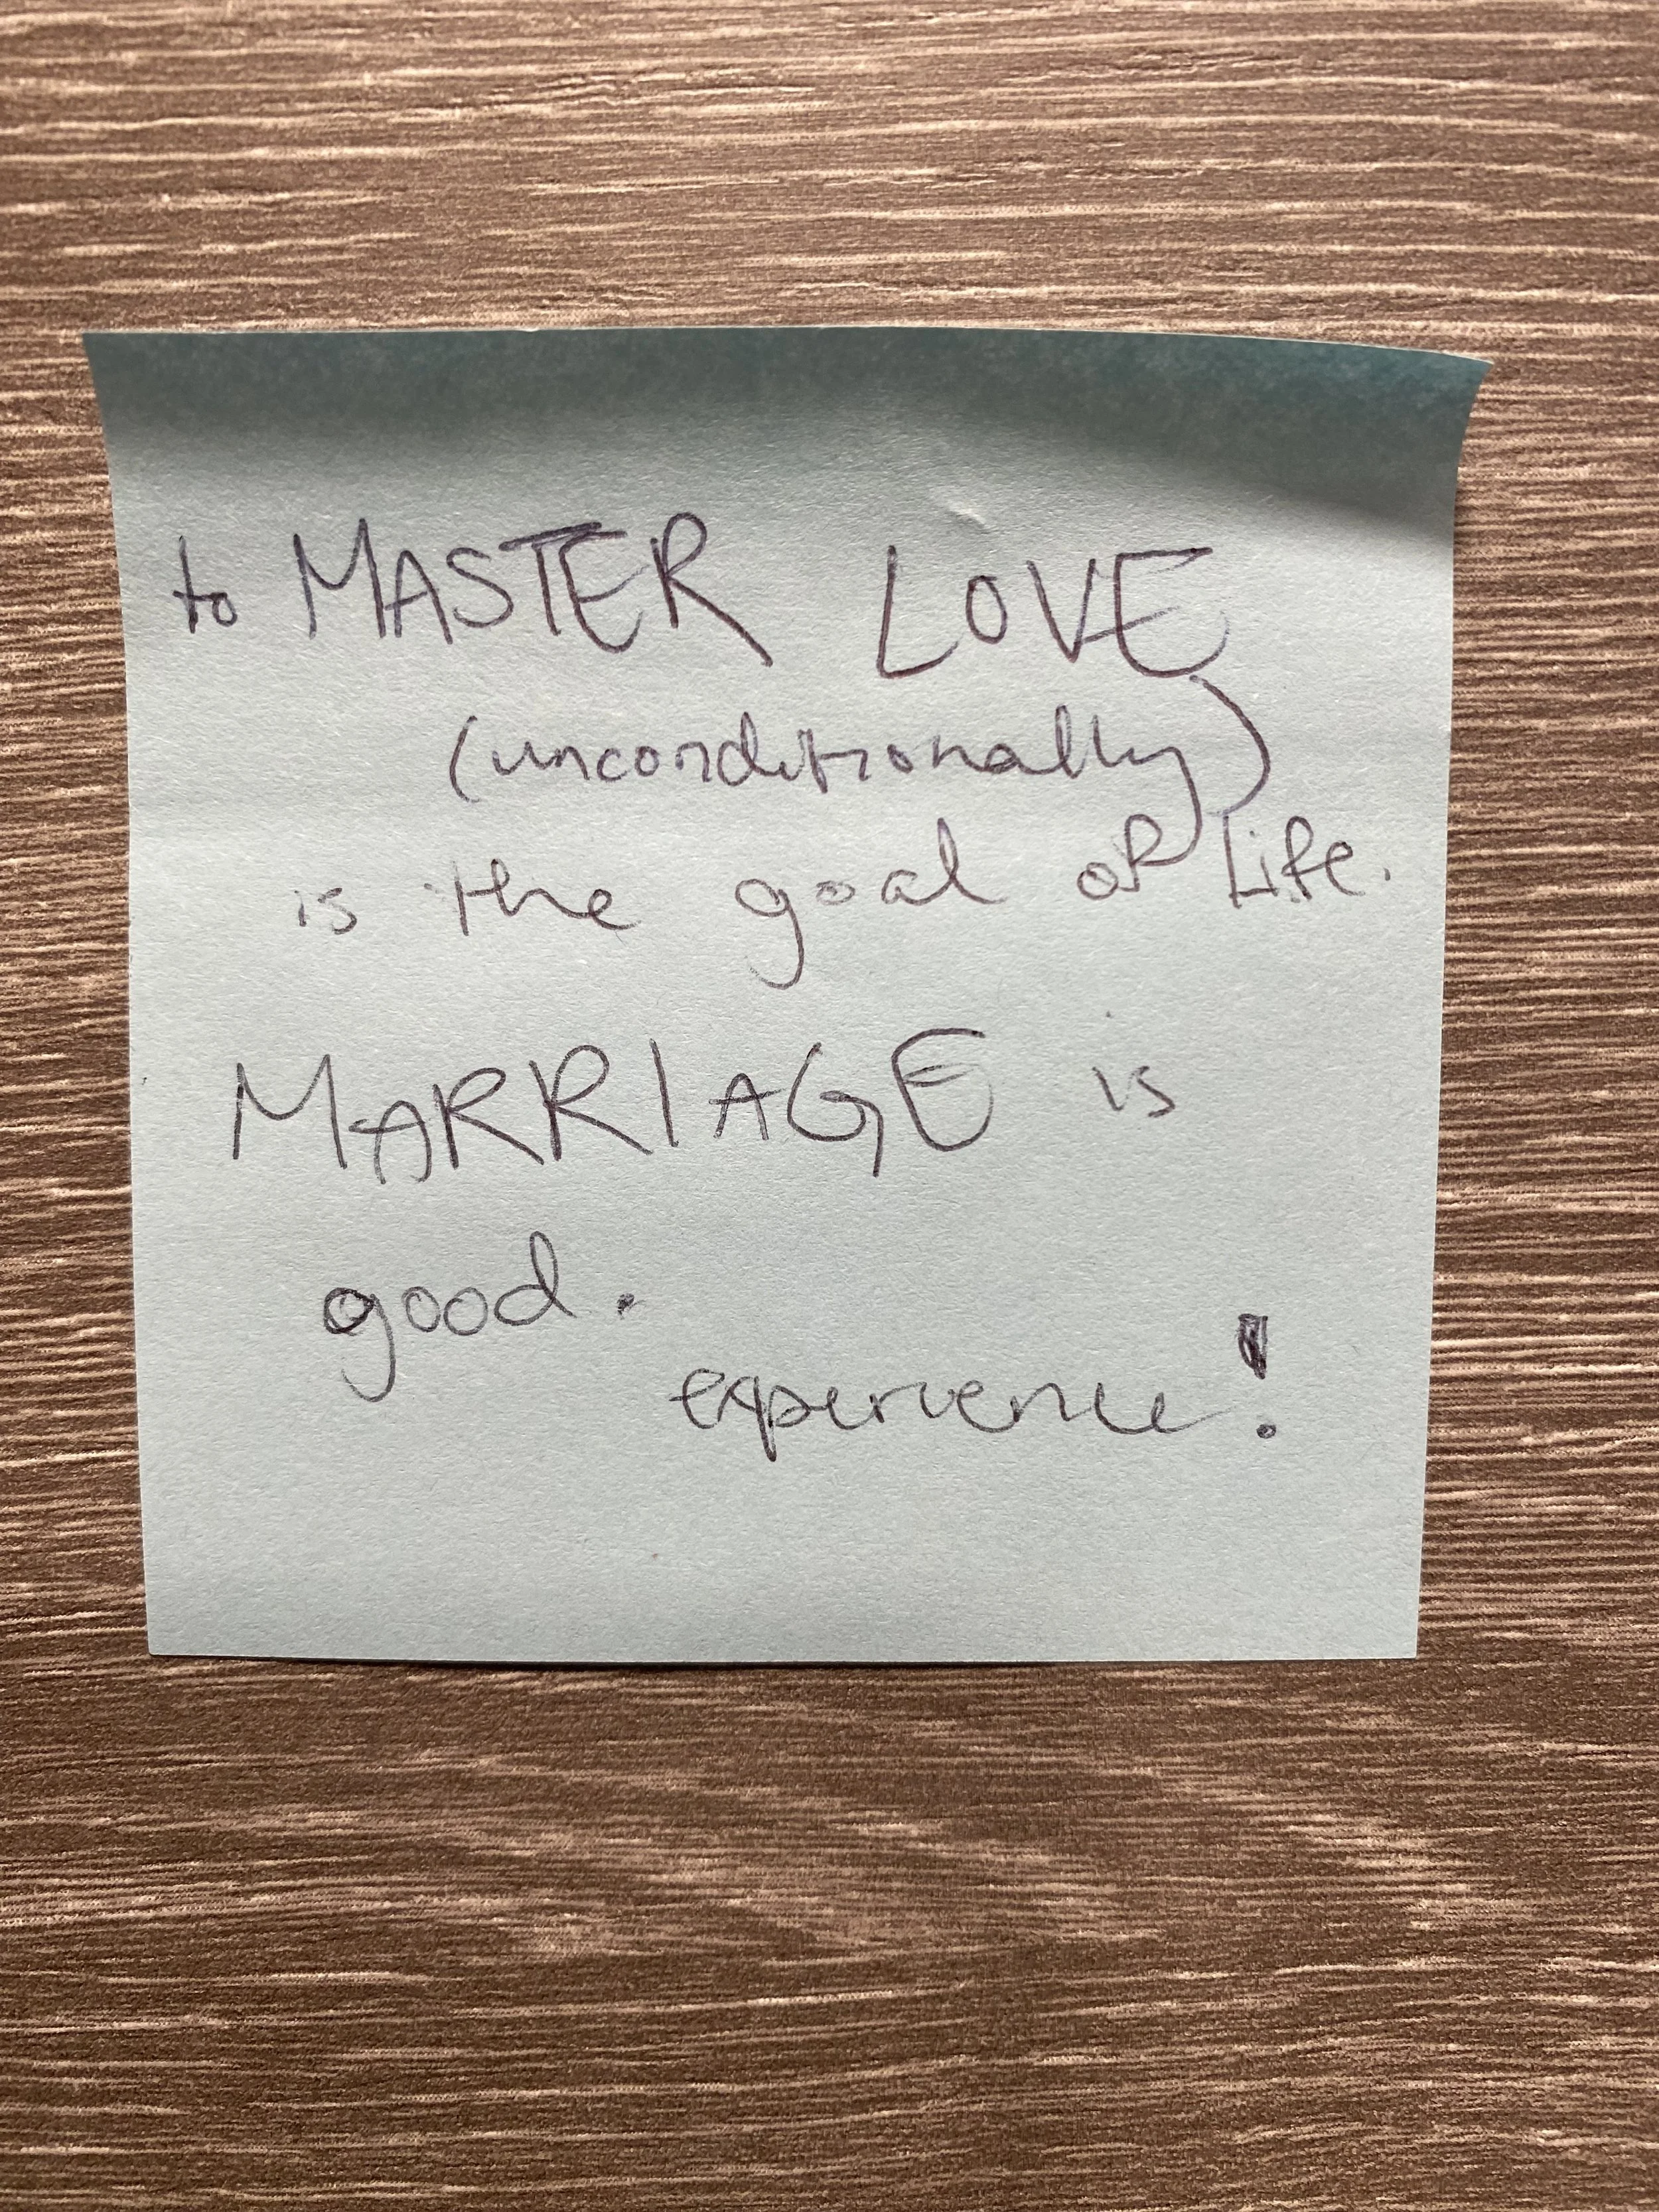 to MASTER LOVE
(unconditionally)
is the goal of Life.
MARRIAGE is
good.
experience!